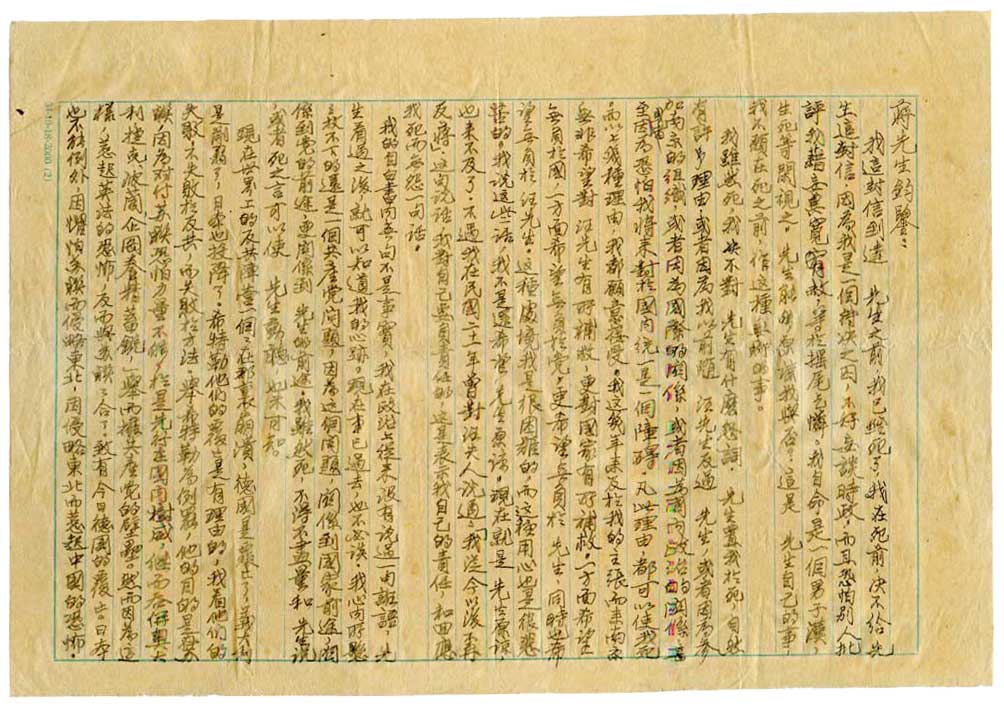 蔣先生鈞鑒：
我這封信到達　先生之前，我已經死了。我在死前，決不給先
生這封信，因為我是一個待決之囚，不好妄談時政，而且恐怕別人批
評我藉意冀寬宥赦，等於搖尾乞憐。我自命是一個男子漢，
生死等閒視之。先生能夠原諒我與否，這是　先生自己的事，
我不願在死之前，作這種無聊的事。
我雖然死，我決不對　先生有什麼怨詞，先生置我於死，自然
有許多理由，或者因為我以前隨　汪先生反過　先生，或者因為參
加南京的組織，或者因為國際的關係，或者因為國內政治的關係，甚
至因為恐怕我將來對於國內統一是一個障礙，凡此理由，都可以使我死
而以這種理由，我都願意接受。我這幾年來反於我的主張而來南京
無非希望對　汪先生有所補救，更對國家有所補救。一方面希望
無負於國，一方面希望無負於黨，更希望無負於　先生，同時也希
望無負於汪先生。這種處境我是很困難的，而這種用心也是很悲
慘的。我說這些話，我不是還希望　先生原諒，現在就是　先生原諒，
也來不及了。不過我在民國二十一年曾對汪夫人說過「我從今以後不再
反蔣」這句說話，我對自己要負責任的，這是表示我自己的責任，和回應
我死而無怨一句話。
我的自白書內無一句不是事實，我在政治上從來沒有說過一句誑語，先
生看過之後，就可以知道我的心跡。現在事已過去，也不必談。我心內所懸
之放不下的還是一個共產黨問題，因為這個問題，關係到國家前途，關
係到黨的前途，更關係到　先生的前途。我雖然死，不得不盡量和　先生說，
或者死之言可以使　先生動聽，也未可知。
現在世界上的反共陣營一個個在那裏崩潰，德國是完了，義大利
是倒了，日本也投降了。希特勒他們的覆亡是有理由的，我看他們的
失敗，不失敗於反共，而失敗於方法。舉希特勒為例罷，他的目的是蘇
聯，因為對付蘇聯恐怕力量不夠，於是先在國內樹威，繼而吞併奧大
利捷克波蘭，企圖養精蓄銳，一舉而摧共產黨的壁壘。然而因為這
樣，惹起英法的恐怖，反而與蘇聯聯合了，致有今日德國的覆亡。日本
也不能例外，因懼怕蘇聯而侵略東北，因侵略東北而惹起中國的恐怖。